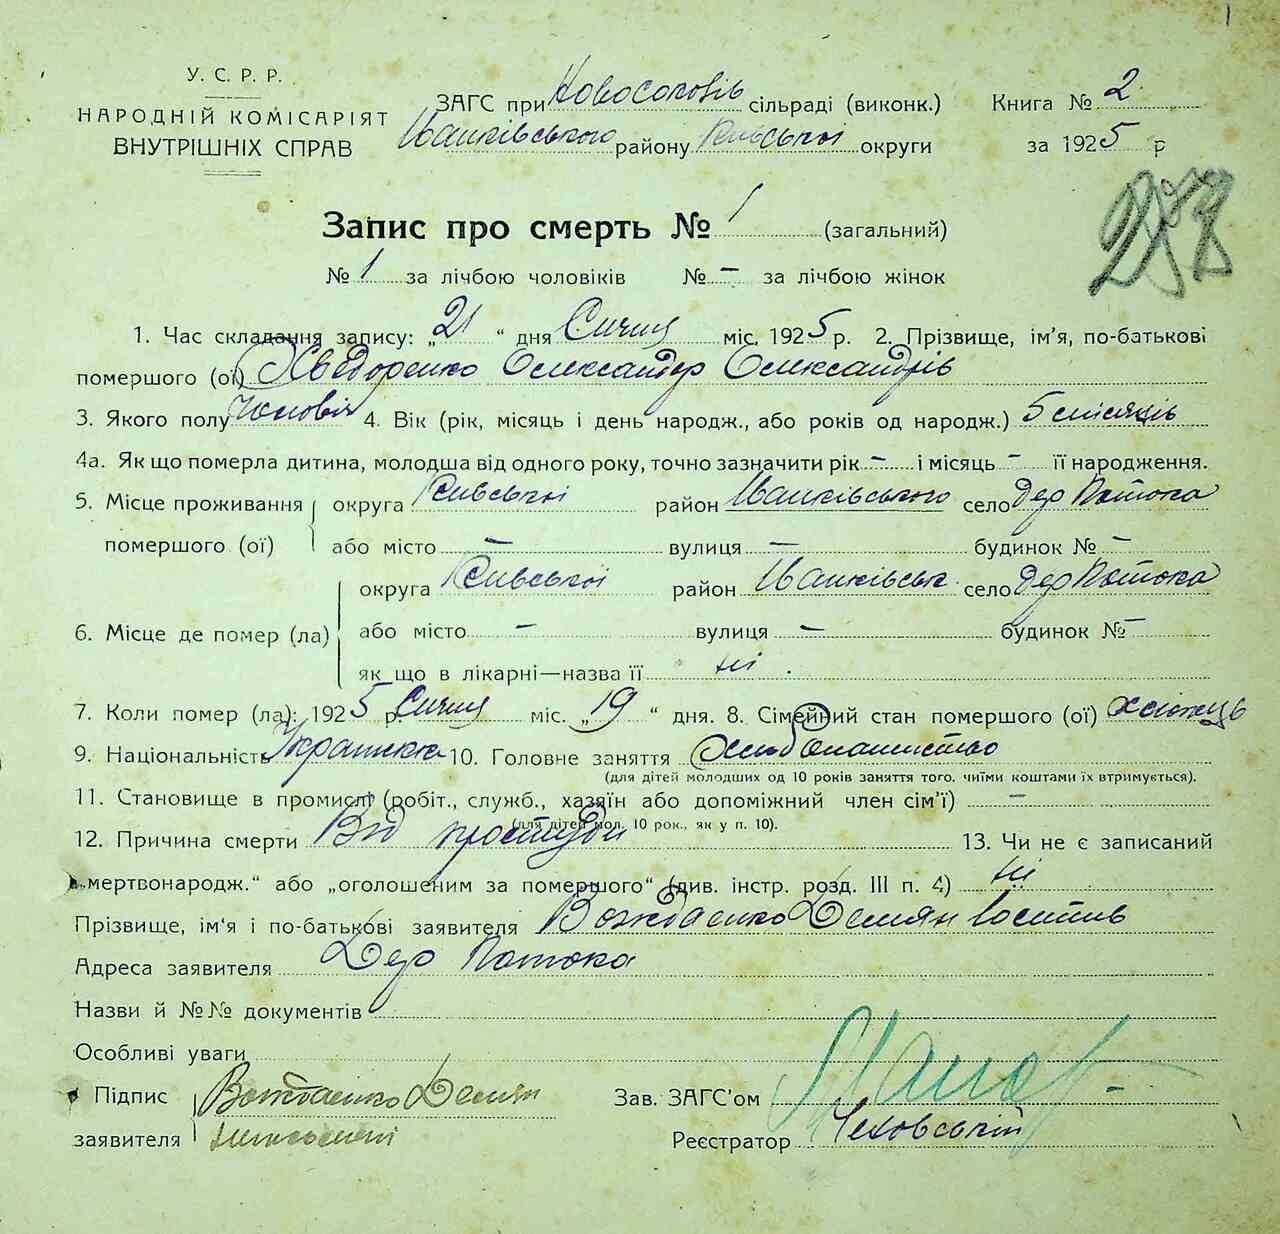 У. С. Р. Р.
НАРОДНІЙ КОМІСАРІЯТ
ВНУТРІШНІХ СПРАВ
ЗАГС при Новосоковів сільраді (виконк.)
Іванківського району Київської округи
Книга № 2
за 1925 р
Запис про смерть № 1 (загальний)
№ 1 за лічбою чоловіків № – за лічбою жінок
1. Час складання запису: „21 “ дня Січня міс. 1925 р. 2. Прізвище, ім’я, по-батькові
помершого (ої) Хведоренко Олександер Олександрів
3. Якого полу Чоловік 4. Вік (рік, місяць і день народж., або років од народж.) 5 місяців
4а. Як що померла дитина, молодша від одного року, точно зазначити рік – і місяць – її народження.
5. Місце проживання помершого (ої) округа Київської район Іванківського село дер Потока
або місто – вулиця – будинок № –
6. Місце де помер (ла) округа Київської район Іванківськ. село дер Потока
або місто – вулиця – будинок № –
як що в лікарні—назва її ні .
7. Коли помер (ла): 1925 р. Січня міс. „19 “ дня. 8. Сімейний стан помершого (ої)
9. Національність 10. Головне заняття Хлібопашиство
(для дітей молодших од 10 років заняття того, чиїми коштами їх втримується).
11. Становище в промислі (робіт., служб., хазяїн або допоміжний член сім’ї) –
(для дітей мол. 10 рок., як у п. 10).
12. Причина смерти Від простуди 13. Чи не є записаний
„мертвонародж.“ або „оголошеним за помершого“ (див. інстр. розд. III п. 4) ні
Прізвище, ім’я і по-батькові заявителя Демян
Адреса заявителя Дер Потока
Назви й №№ документів
Особливі уваги
Підпис заявителя Демян
Зав. ЗАГС’ом
Реєстратор Чеховський